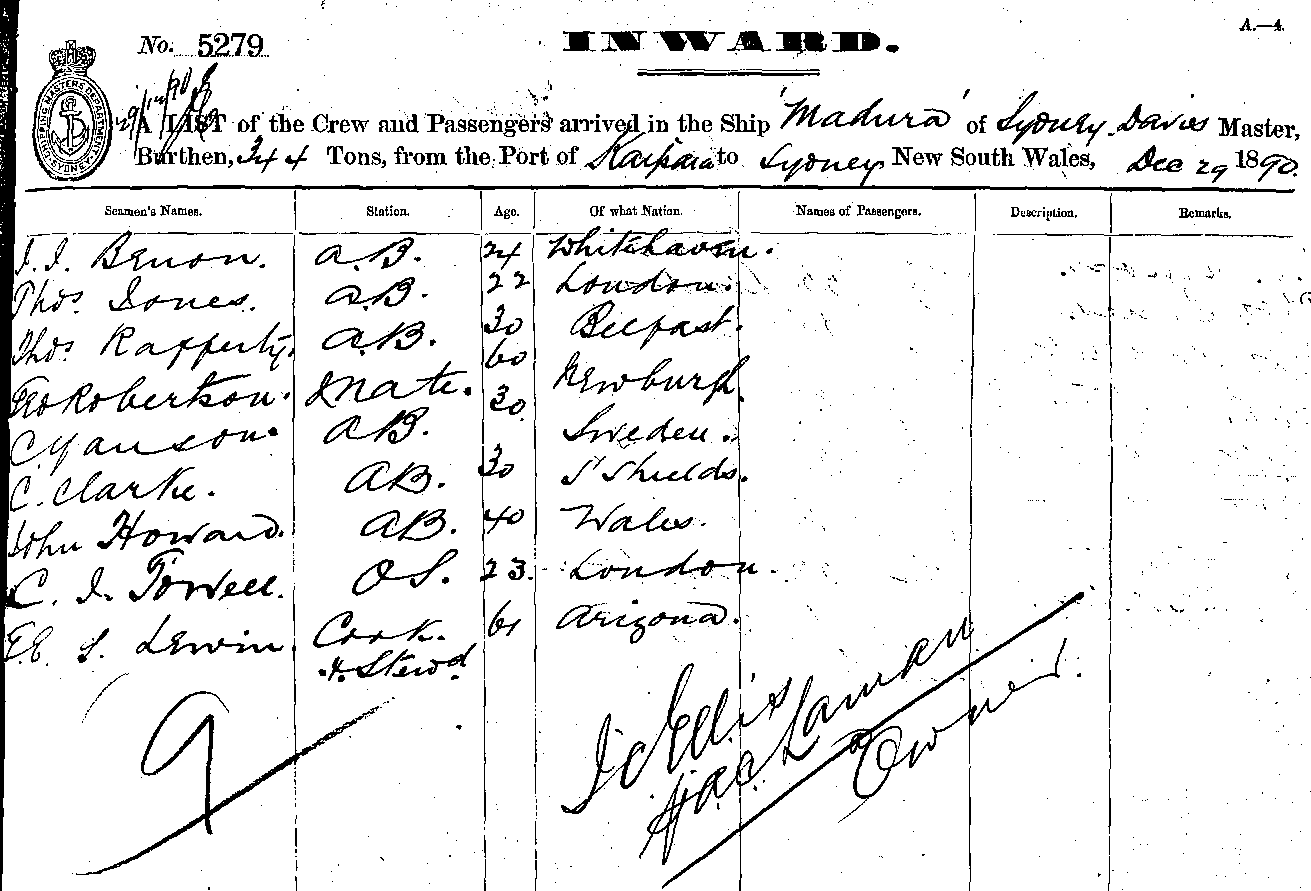 A.—4.
No. 5279 INWARD.
SHIPPING MASTERS DEPARTMENT SYDNEY
29/12/90
A LIST of the Crew and Passengers arrived in the Ship 'Madura' of Sydney. Davies Master,
Burthen, 344 Tons, from the Port of Kaipara to Sydney New South Wales, Dec 29 1890.
Seamen's Names. Station. Age. Of what Nation. Names of Passengers. Description. Remarks.
J. J. Benon. A.B. 24 Whitehaven.
Thos Jones. A.B. 22 London.
Thos Rafferty. A.B. 30 Belfast.
Geo Robertson. Mate. 60 Newburgh.
C. Yanson. AB. 30 Sweden.
C. Clarke. AB. 30 S Shields.
John Howard. AB. 40 Wales.
C. J. Powell. OS. 23. London.
S. Lewin. Cook. 61 Arizona.
& Stewd
9
Owner.